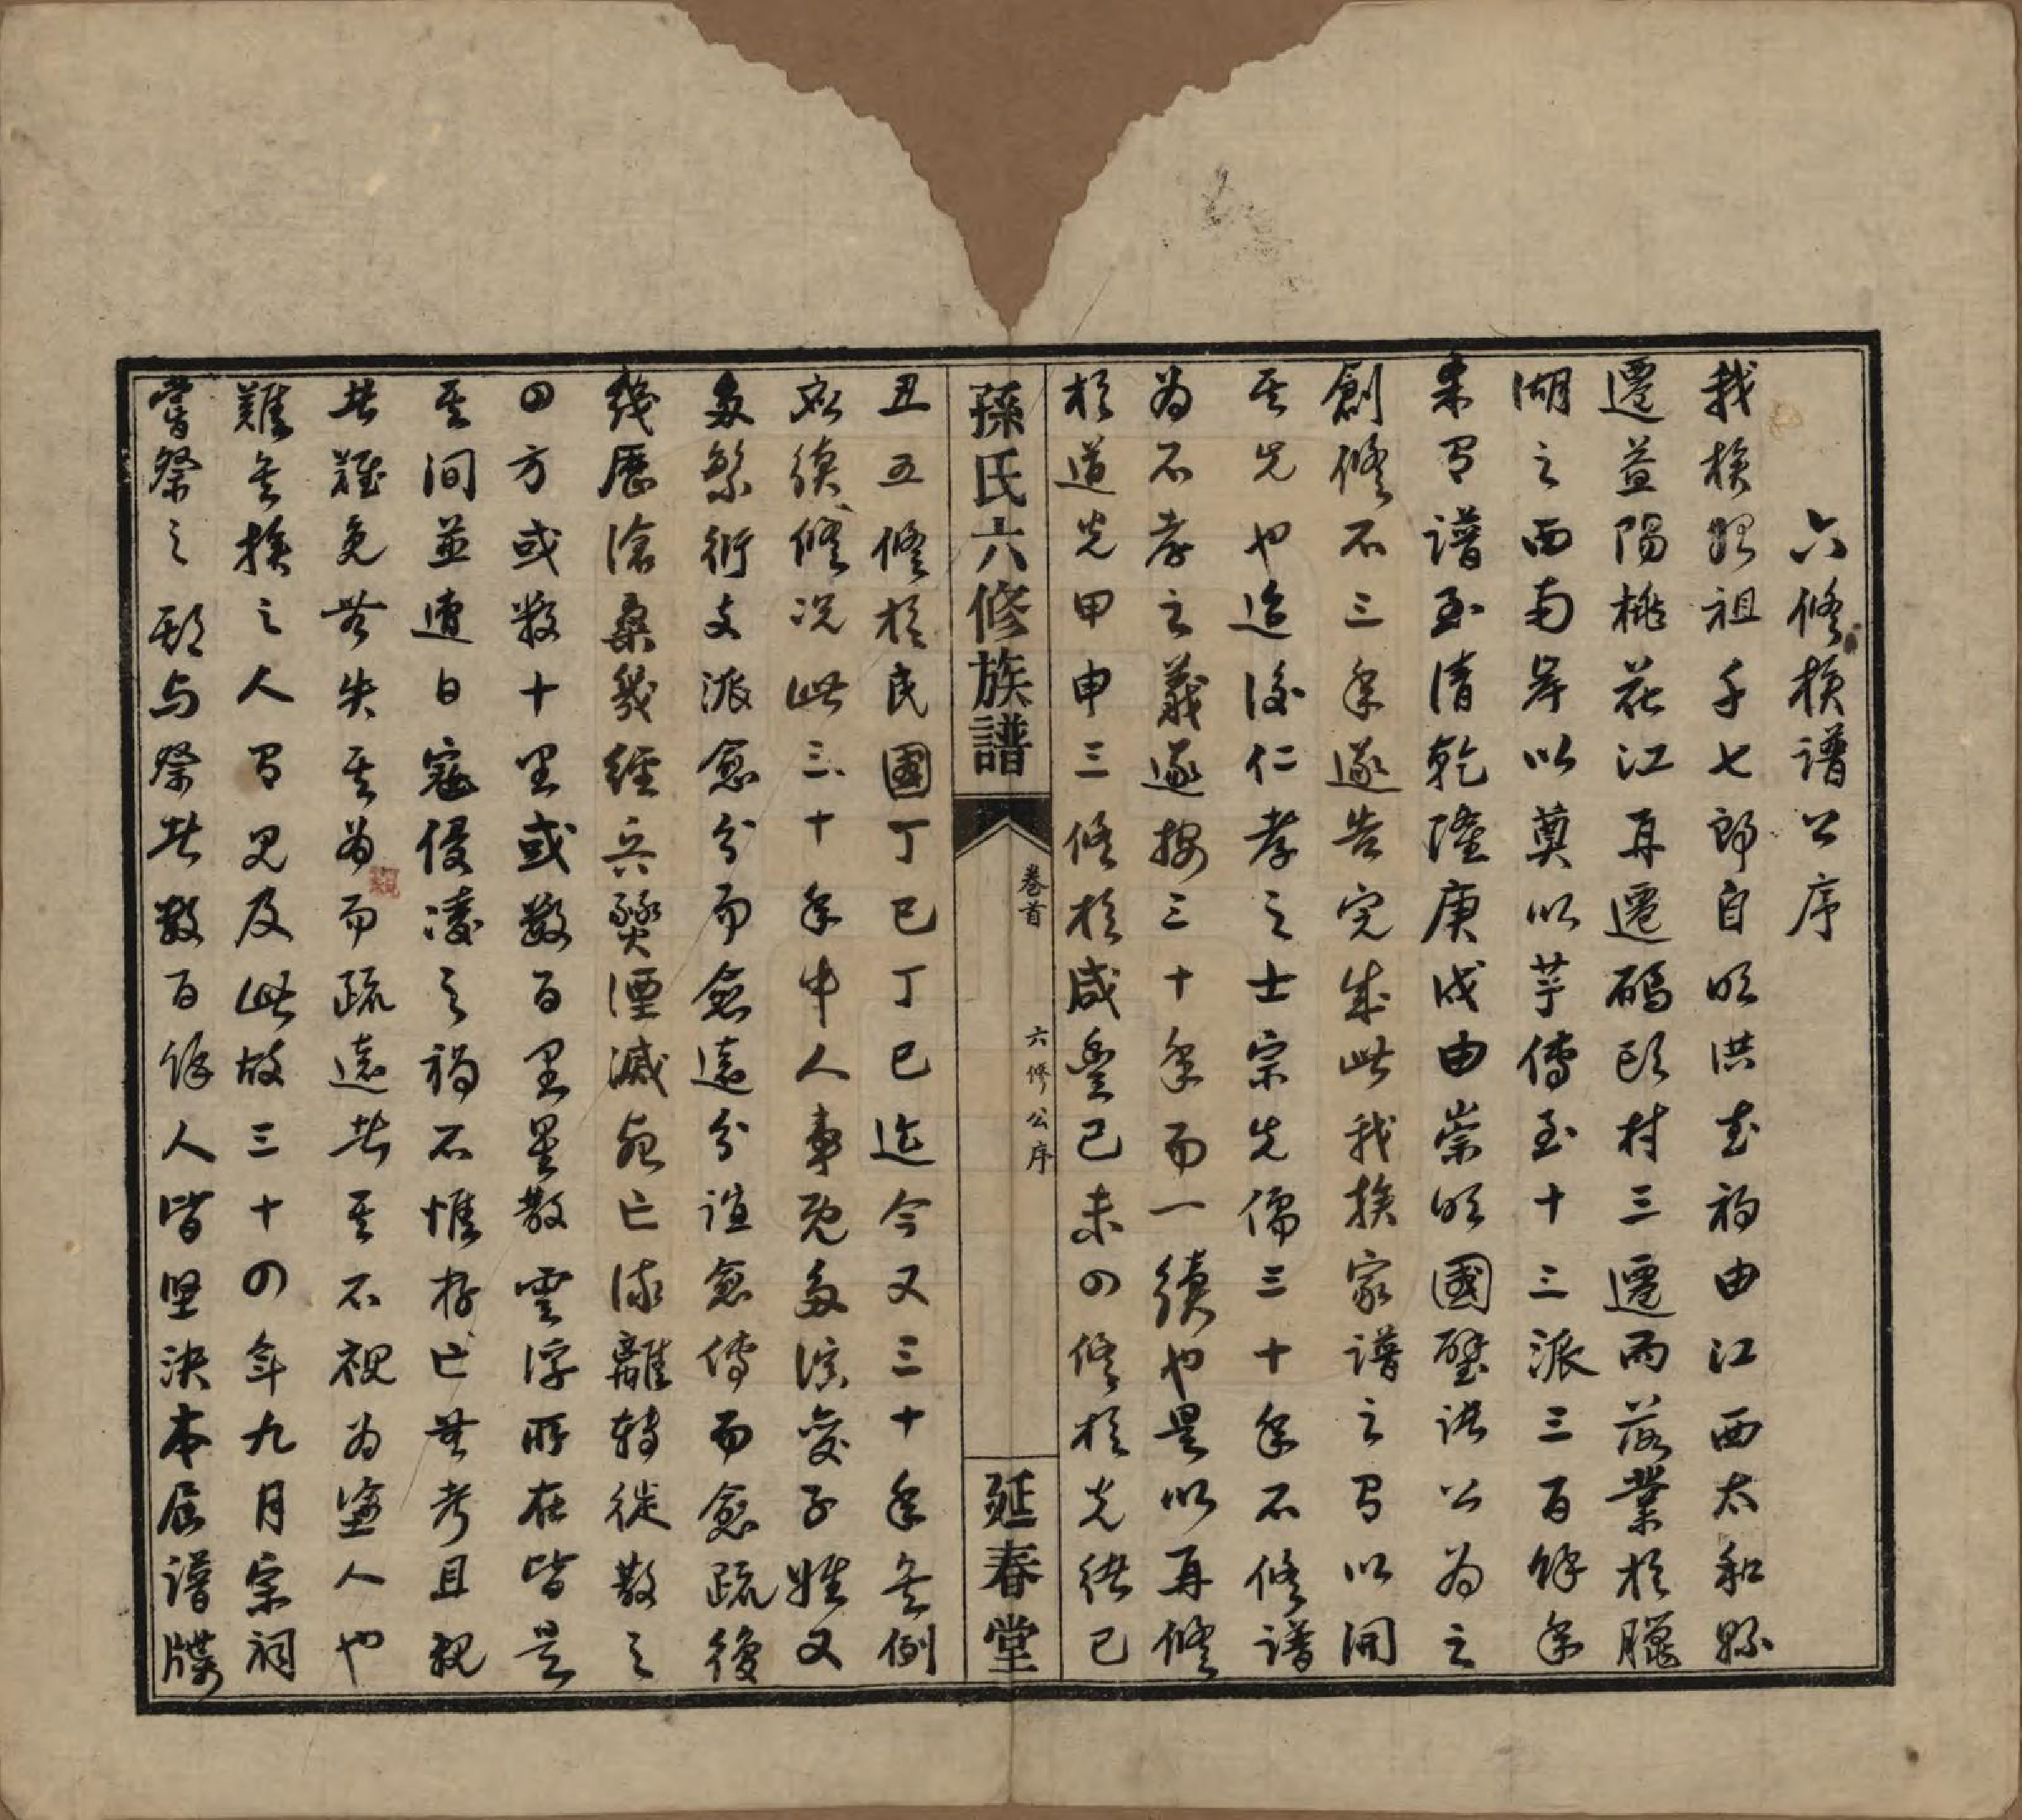 六修族譜公序
我族始祖千七郎自明洪武初由江西太和縣
遷益陽桃花江再遷碼頭村三遷而落業於腰
湖之西南岸以奠以芋傳至十三派三百餘年
未有譜至清乾隆庚戌由崇明國璧諸公為之
創修不三年遂告完成此我族家譜之有以開
其先也迨後仁孝之士宗先儒三十年不修譜
為不孝之義遂按三十年而一續也是以再修
於道光甲申三修於咸豐己未四修於光緒己
孫氏六修族譜
卷首
六修公序
延春堂
丑五修於民國丁巳丁巳迄今又三十年矣例
應續修況此三十年中人事既多演變子姓又
多繁衍支派愈分而愈遠分誼愈傳而愈疏後
幾歷滄桑幾經兵燹湮滅死亡流離轉徙散之
四方或數十里或數百里星散雲浮所在皆是
其間並遭日寇侵凌之禍不惟存亡無考且親
者難免無失其為而疏遠者其不視為塗人也
難矣族之人有見及此故三十四年九月宗祠
嘗祭之期与祭者數百餘人皆坚決本屆譜牒